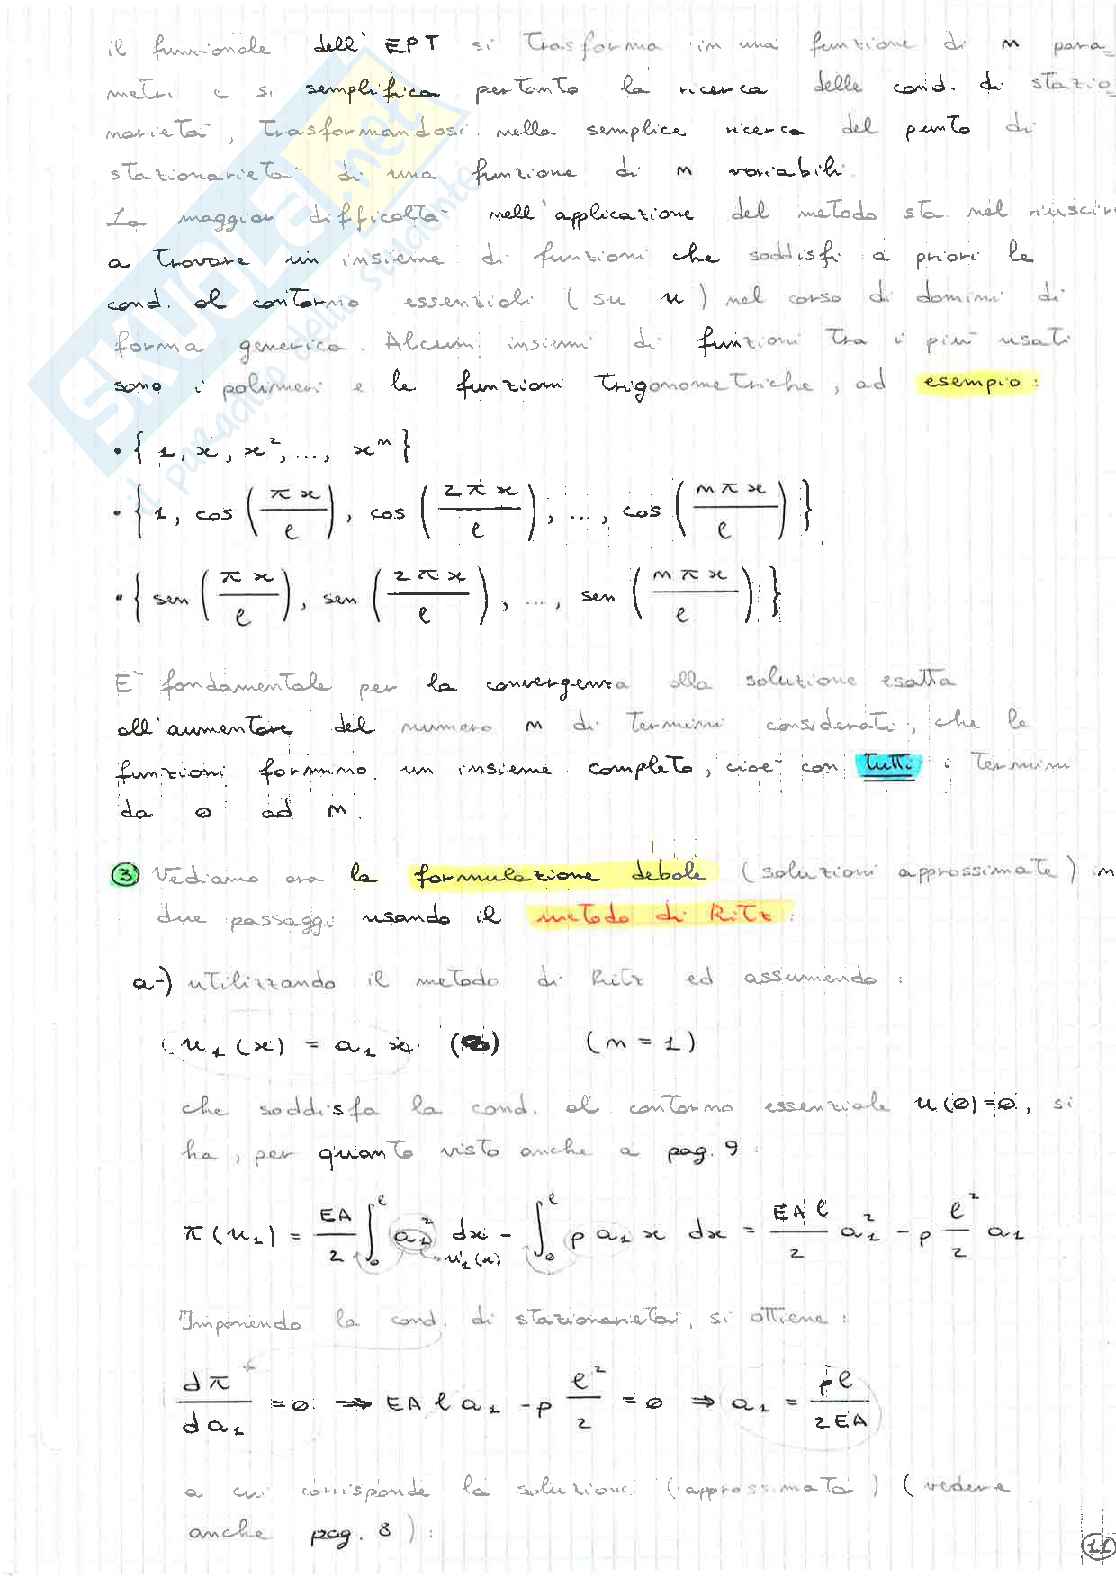 il funzionale dell'EPT si trasforma in una funzione di n para-
metri e si semplifica pertanto la ricerca delle cond. di stazio-
narietà, trasformandosi nella semplice ricerca del punto di
stazionarietà di una funzione di n variabili.
La maggior difficoltà nell'applicazione del metodo sta nel riuscire
a trovare un insieme di funzioni che soddisfi a priori le
cond. al contorno essenziali (su u) nel corso di domini di
forma generica. Alcuni insiemi di funzioni tra i più usati
sono i polinomi e le funzioni trigonometriche, ad esempio:
• { 1, x, x², ..., xⁿ }
• { 1, cos (πx/l), cos (2πx/l), ..., cos (nπx/l) }
• { sen (πx/l), sen (2πx/l), ..., sen (nπx/l) }
E' fondamentale per la convergenza alla soluzione esatta
all'aumentare del numero n di termini considerati, che le
funzioni formino un insieme completo, cioè con tutti i termini
da 0 ad n.
3 Vediamo ora la formulazione debole (soluzioni approssimate) in
due passaggi usando il metodo di Ritz:
a-) utilizzando il metodo di Ritz ed assumendo:
u₁(x) = a₁x (n=1)
che soddisfa la cond. al contorno essenziale u(0)=0, si
ha, per quanto visto anche a pag. 9:
π(u₁) = EA/2 ∫₀ˡ a₁² dx - ∫₀ˡ p a₁ x dx = EAl/2 a₁² - p l²/2 a₁
u₁'(x)
Imponendo la cond. di stazionarietà, si ottiene:
dπ/da₁ = 0 ⇒ EA l a₁ - p l²/2 = 0 ⇒ a₁ = pl/2EA
a cui corrisponde la soluzione (approssimata) (vedere
anche pag. 8):
11
SKUOLA.net
il paradiso dello studente